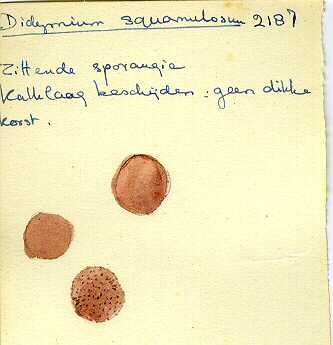 Didymium squamulosum 2187
Zittende sporangia
Kalklaag bescheiden : geen dikke
korst.